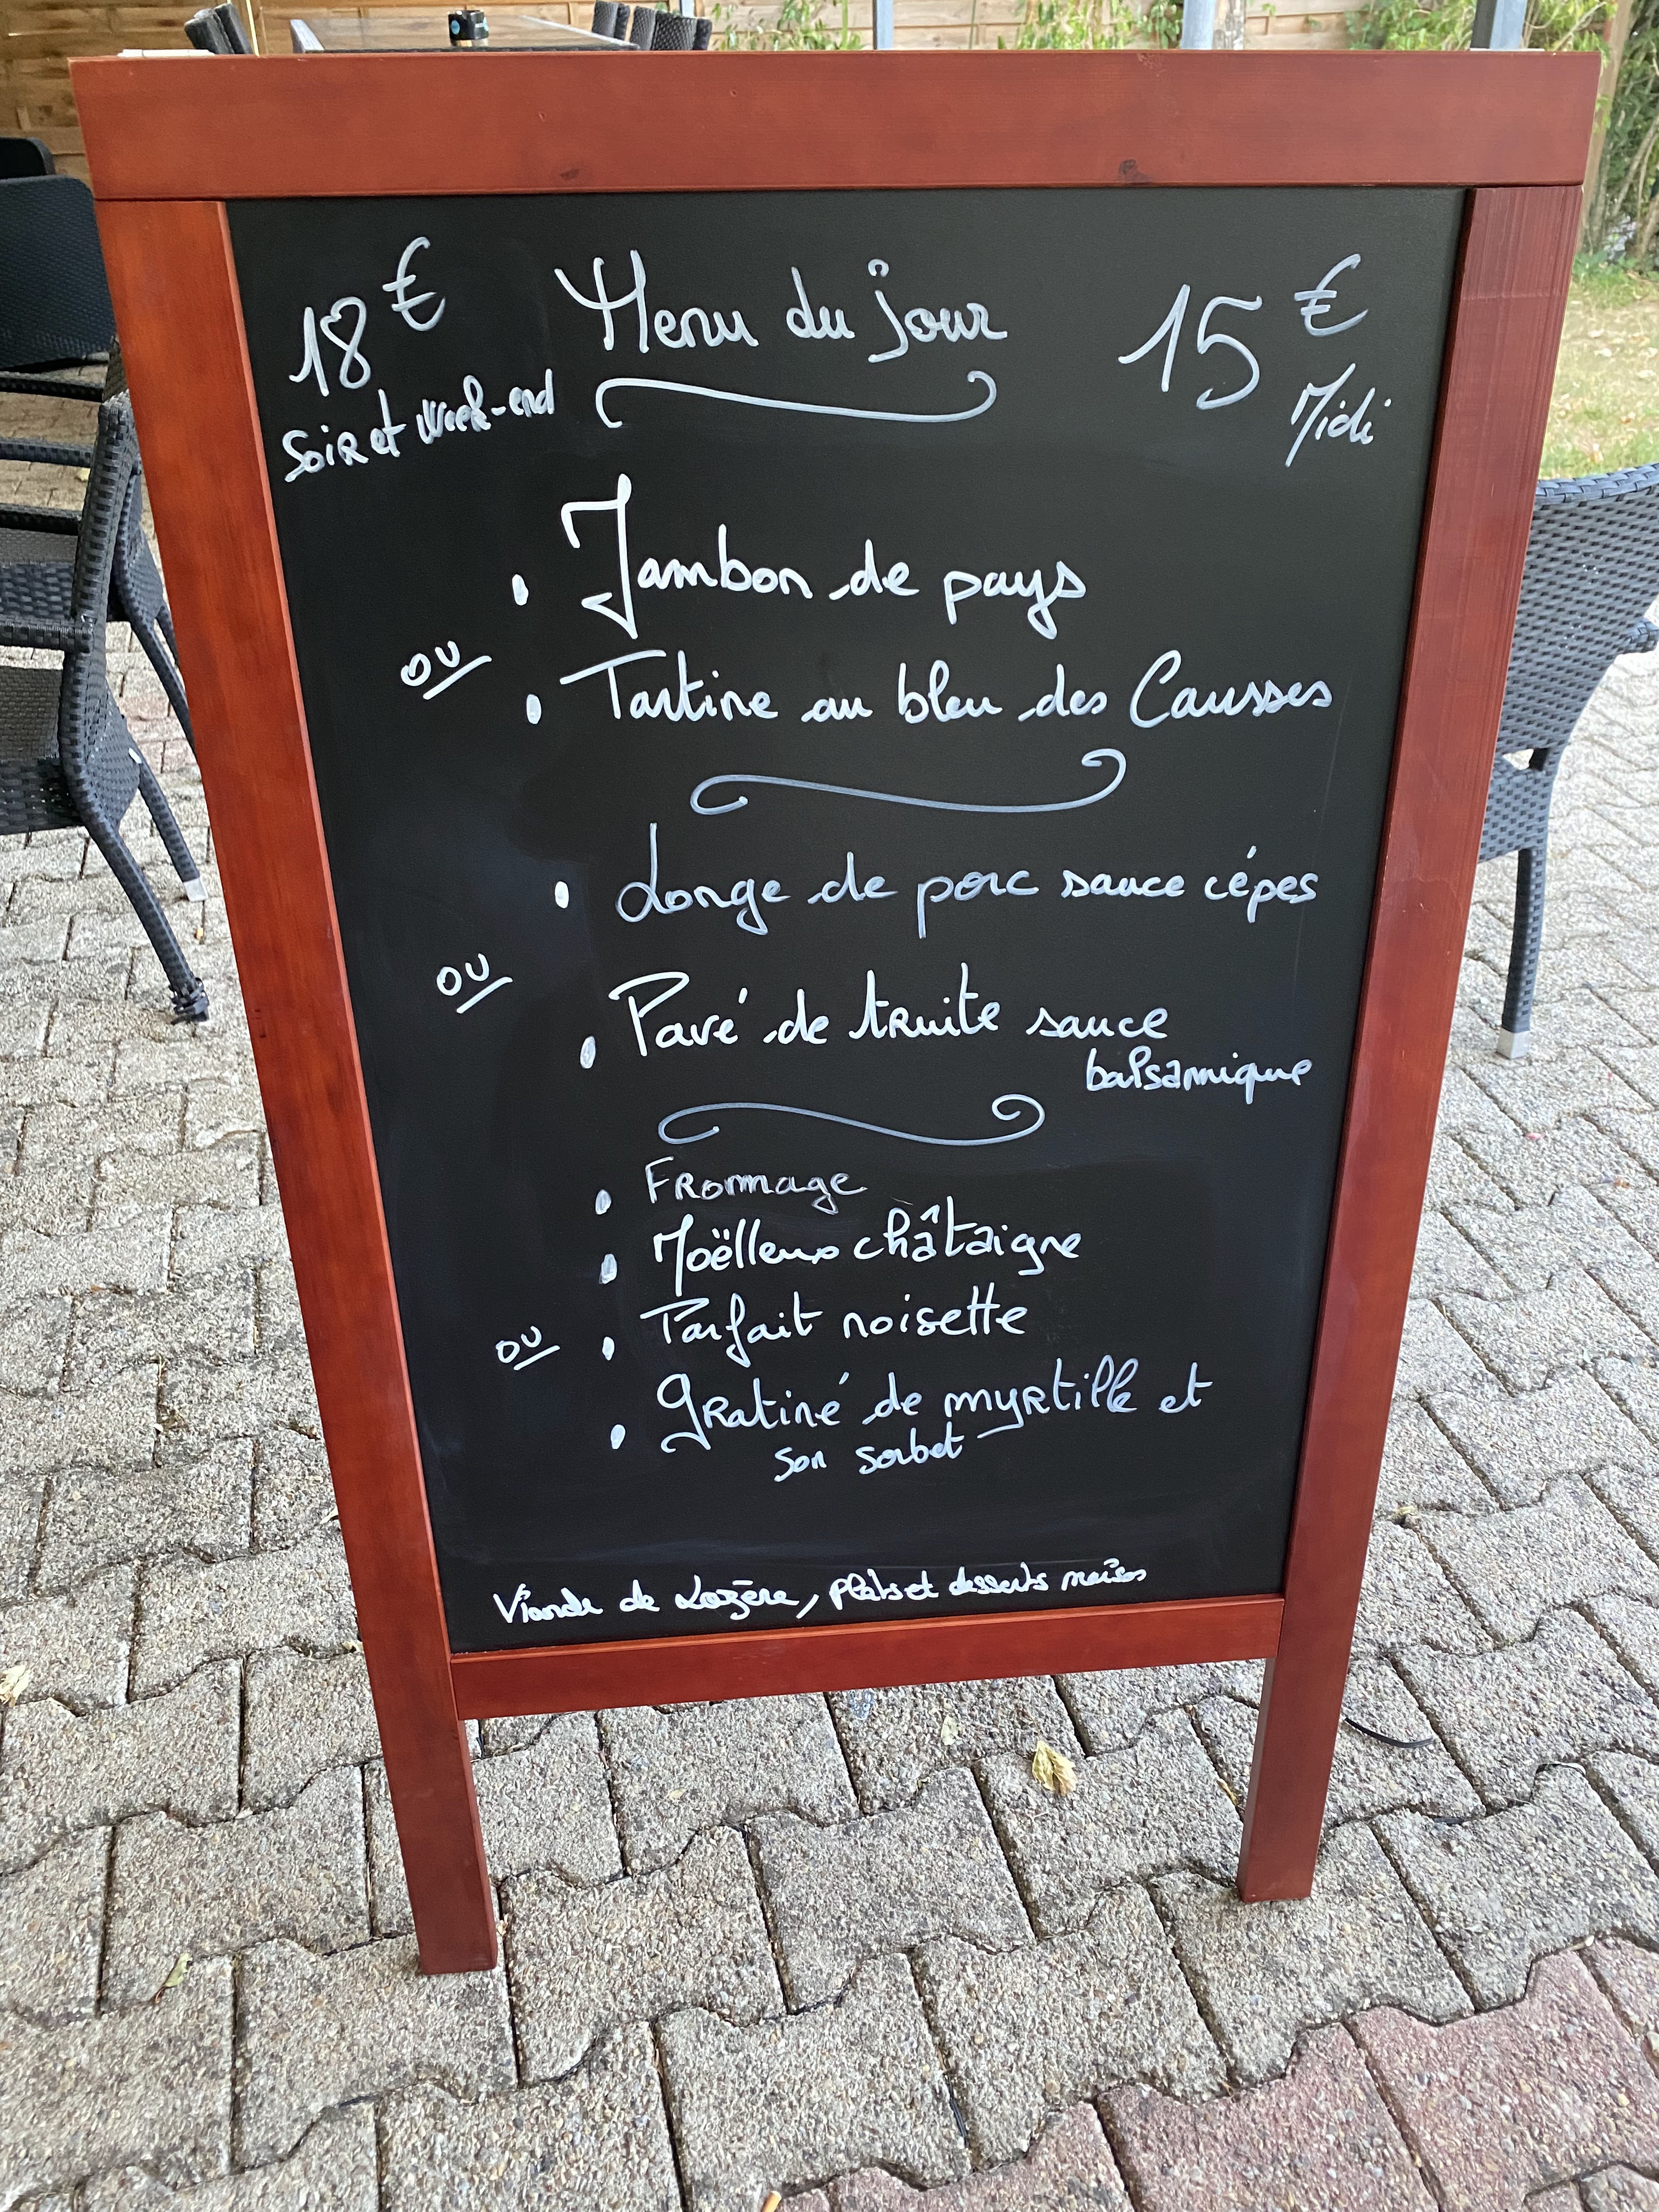 18 € Menu du jour 15 €
Soir et Week-end Midi
• Jambon de pays
ou
• Tartine au bleu des Causses
• Longe de porc sauce cépes
ou
• Pavé de truite sauce
balsamique
• Fromage
• Moëlleux châtaigne
ou • Parfait noisette
• Gratiné de myrtille et
son sorbet
Viande de Lozère, plats et desserts maison